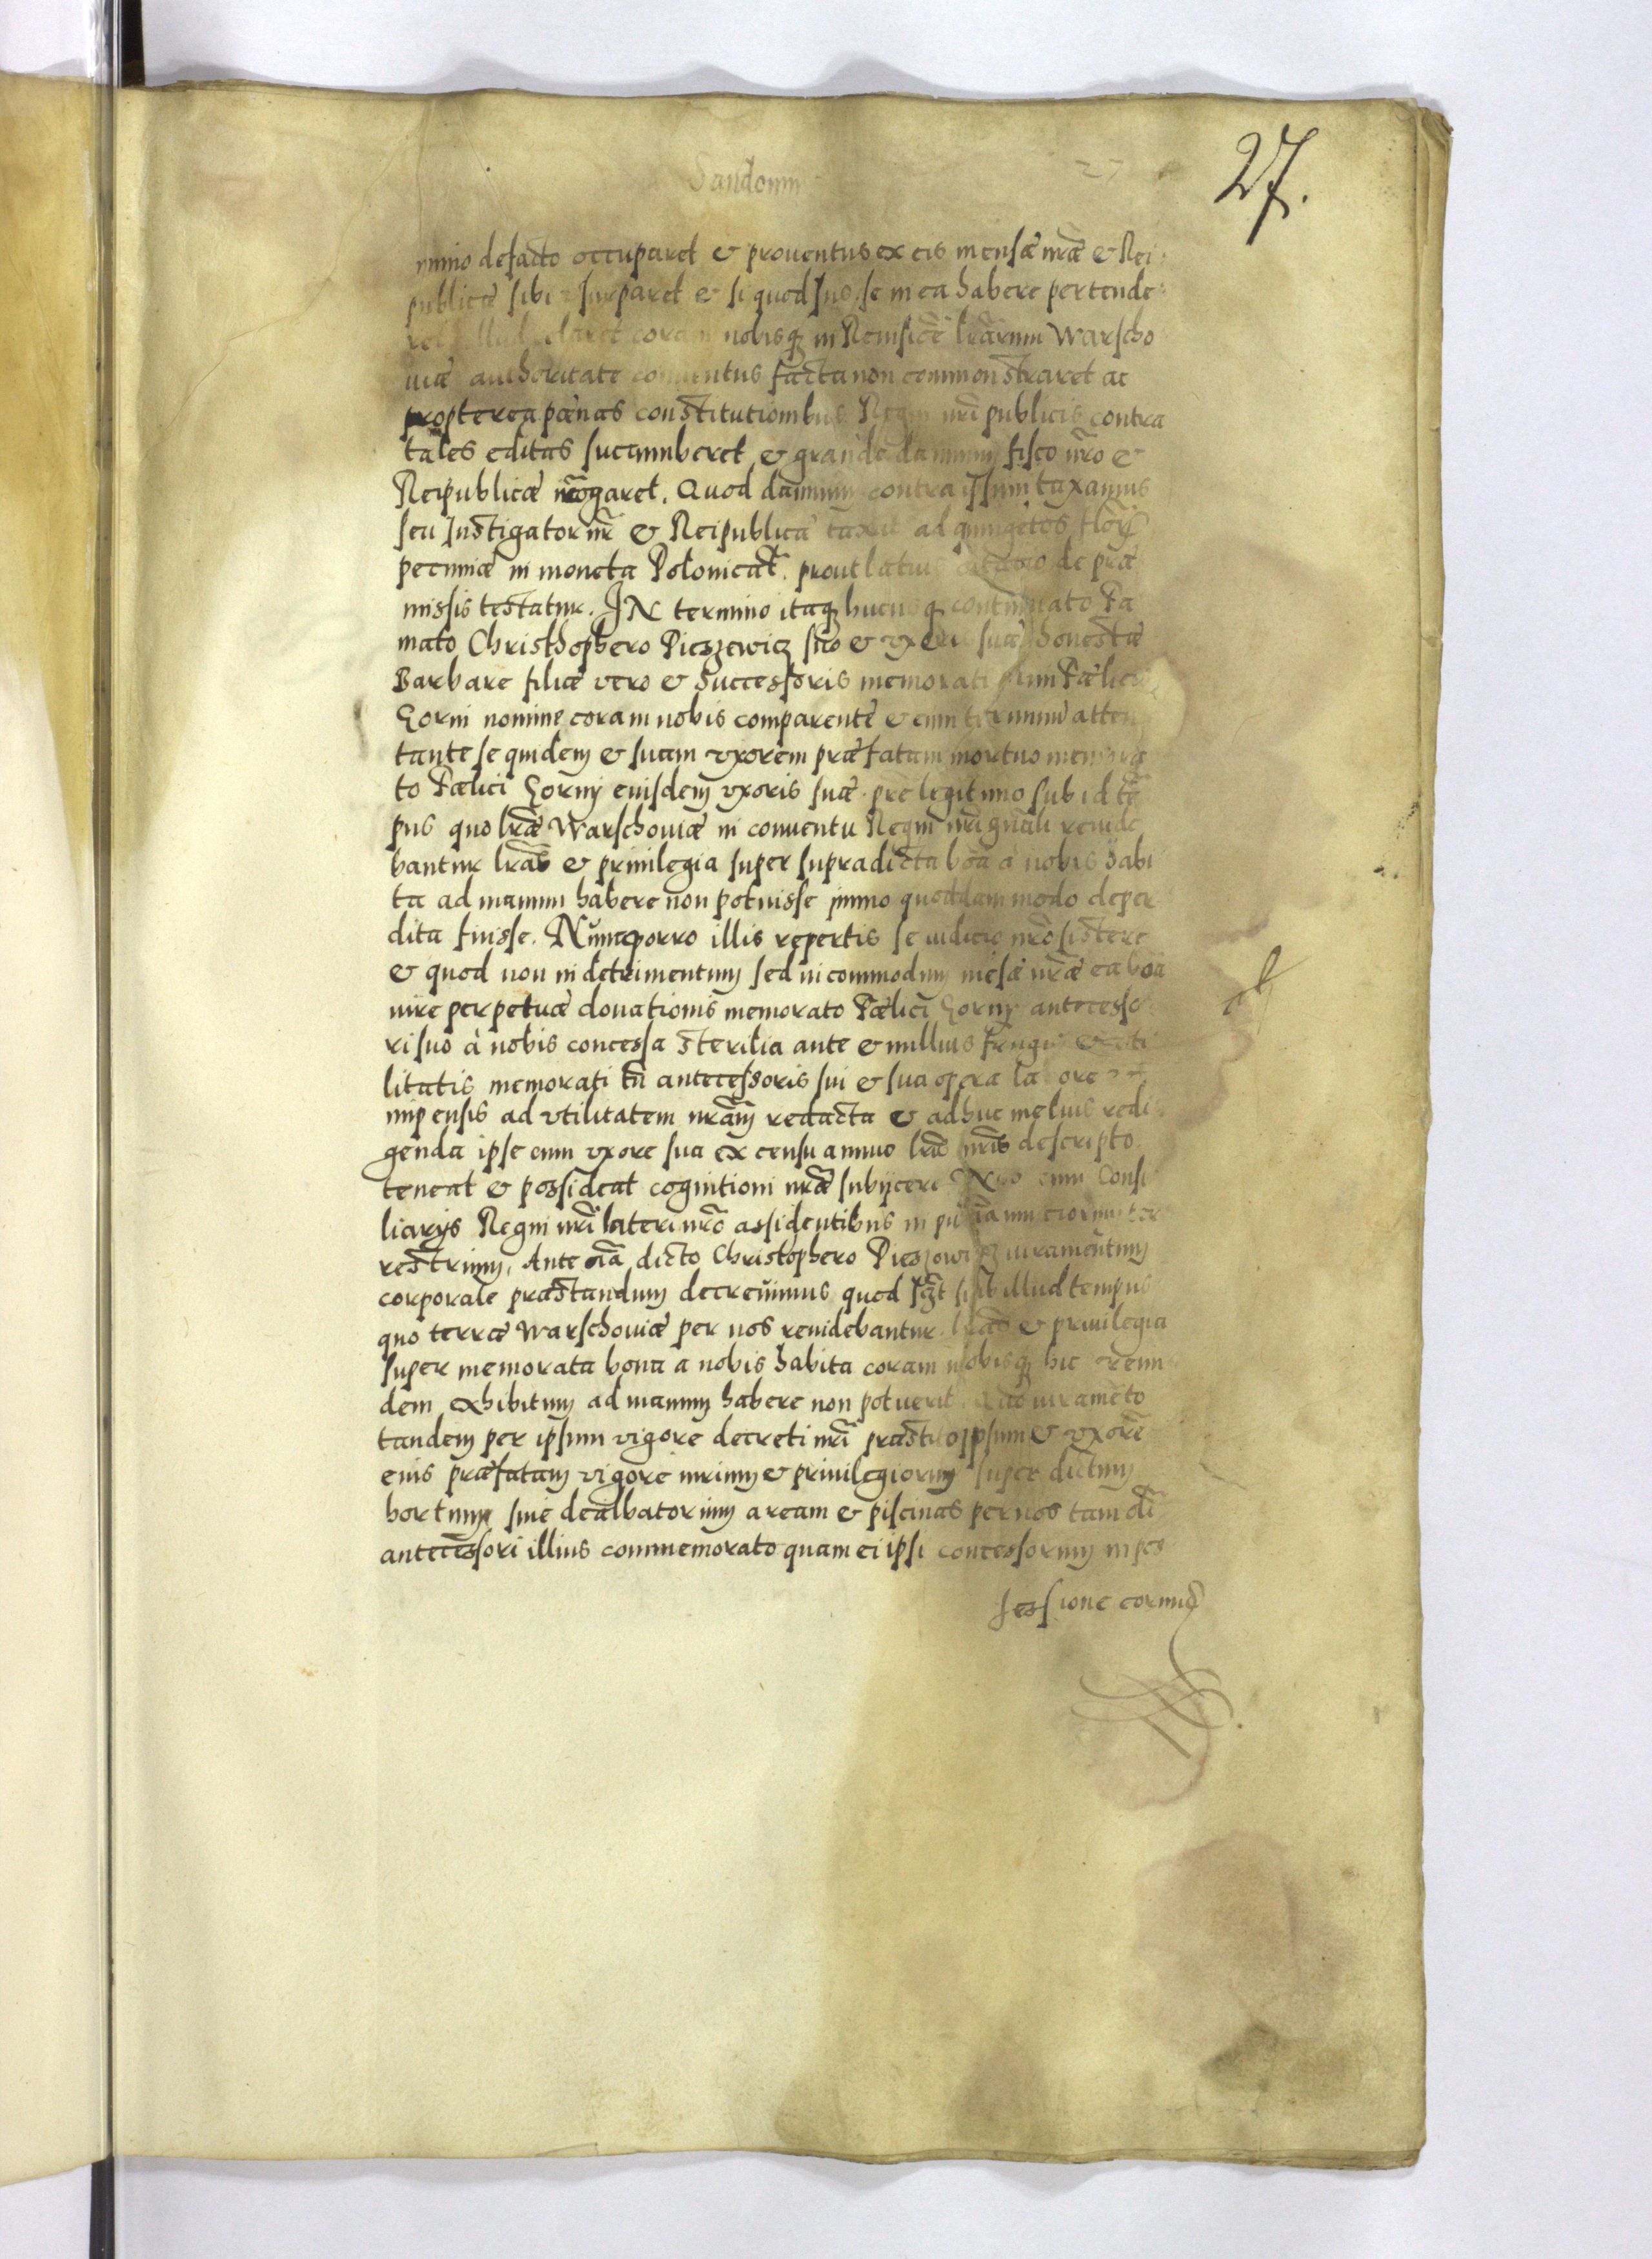 Sandomir
27
27.
mino defacto occuparet & prouentus ex eis mensæ nr̃æ & Rei
publicæ sibi vsurparet & si quod Ius se in ea habere pertende
ret illud coram nobisq̃ in Reuisiõe lrãrum Warscho
uiæ authoritate conuentus facta non commonstraret ac
propterea pœnas constitutionibus Regni nr̃i publicis contra
tales editas succumberet & grande damnum fisco nr̃o &
Reipublicæ irrogaret. Quod damnum contra ipsum taxamus
seu Instigator nr̃ & Reipublicæ taxat ad quingẽtos flor̃
pecuniæ in moneta Polonicał. prout latius citatio de præ
missis testatur. IN termino itaq̃ hucusq̃ continuato Fa
mato Christhophero Pieszewicz suo & vxoris suæ honestæ
Barbare filiæ vero & Successoris memorati olim Fælicis
Gorni nomine coram nobis comparente & eum terminũ atten
tante se quidem & suam vxorem præfatam mortuo memora
to Fælici Gorny eiusdem vxoris suæ pr̃e legitimo sub id tẽ
pus quo lrãe Warschouiæ in conuentu Regni nr̃i gnãli reuide
bantur lrãs & priuilegia super supradicta boã à nobis habi
ta ad manum habere non potuisse immo quoddammodo deper
dita fuisse. Nũnc porro illis repertis se iudicio nr̃o sistere
& quod non in detrimentum sed in commodum mẽsæ nr̃æ ea boã
iure perpetuæ donationis memorato Fælici Gorny antecesso
ri suo à nobis concessa sterilia ante & nullius frugis & vti
litatis memorati tñ antecessoris sui & sua opera labore &
impensis ad vtilitatem nr̃am redacta & adhuc melius redi
genda ipse cum vxore sua ex censu annuo lrĩs nr̃is descripto
teneat & possideat cognitioni nr̃æ subijcere Nos cum Consi
liarijs Regni nr̃i lateri nr̃o assidentibus in
restrium. Ante oĩa dicto Christophero Pieszowicz iuramentum
corporale præstandum decreuimus quod sub illud tempus
quo terræ Warschouiæ per nos reuidebantur lrãs & priuilegia
super memorata bona a nobis habita coram nobisq̃ hic
dem exhibitum ad manum habere non potuerit Quo iuramẽto
tandem per ipsum vigore decreti nr̃i præstito ipsum & vxorẽ
eius præfatam vigore iurium & priuilegiorum super dictum
hortum siue dealbatorium aream & piscinas per nos tam
antecessori illius commemorato quam ei ipsi concessorum in pos
sessione eorund̃